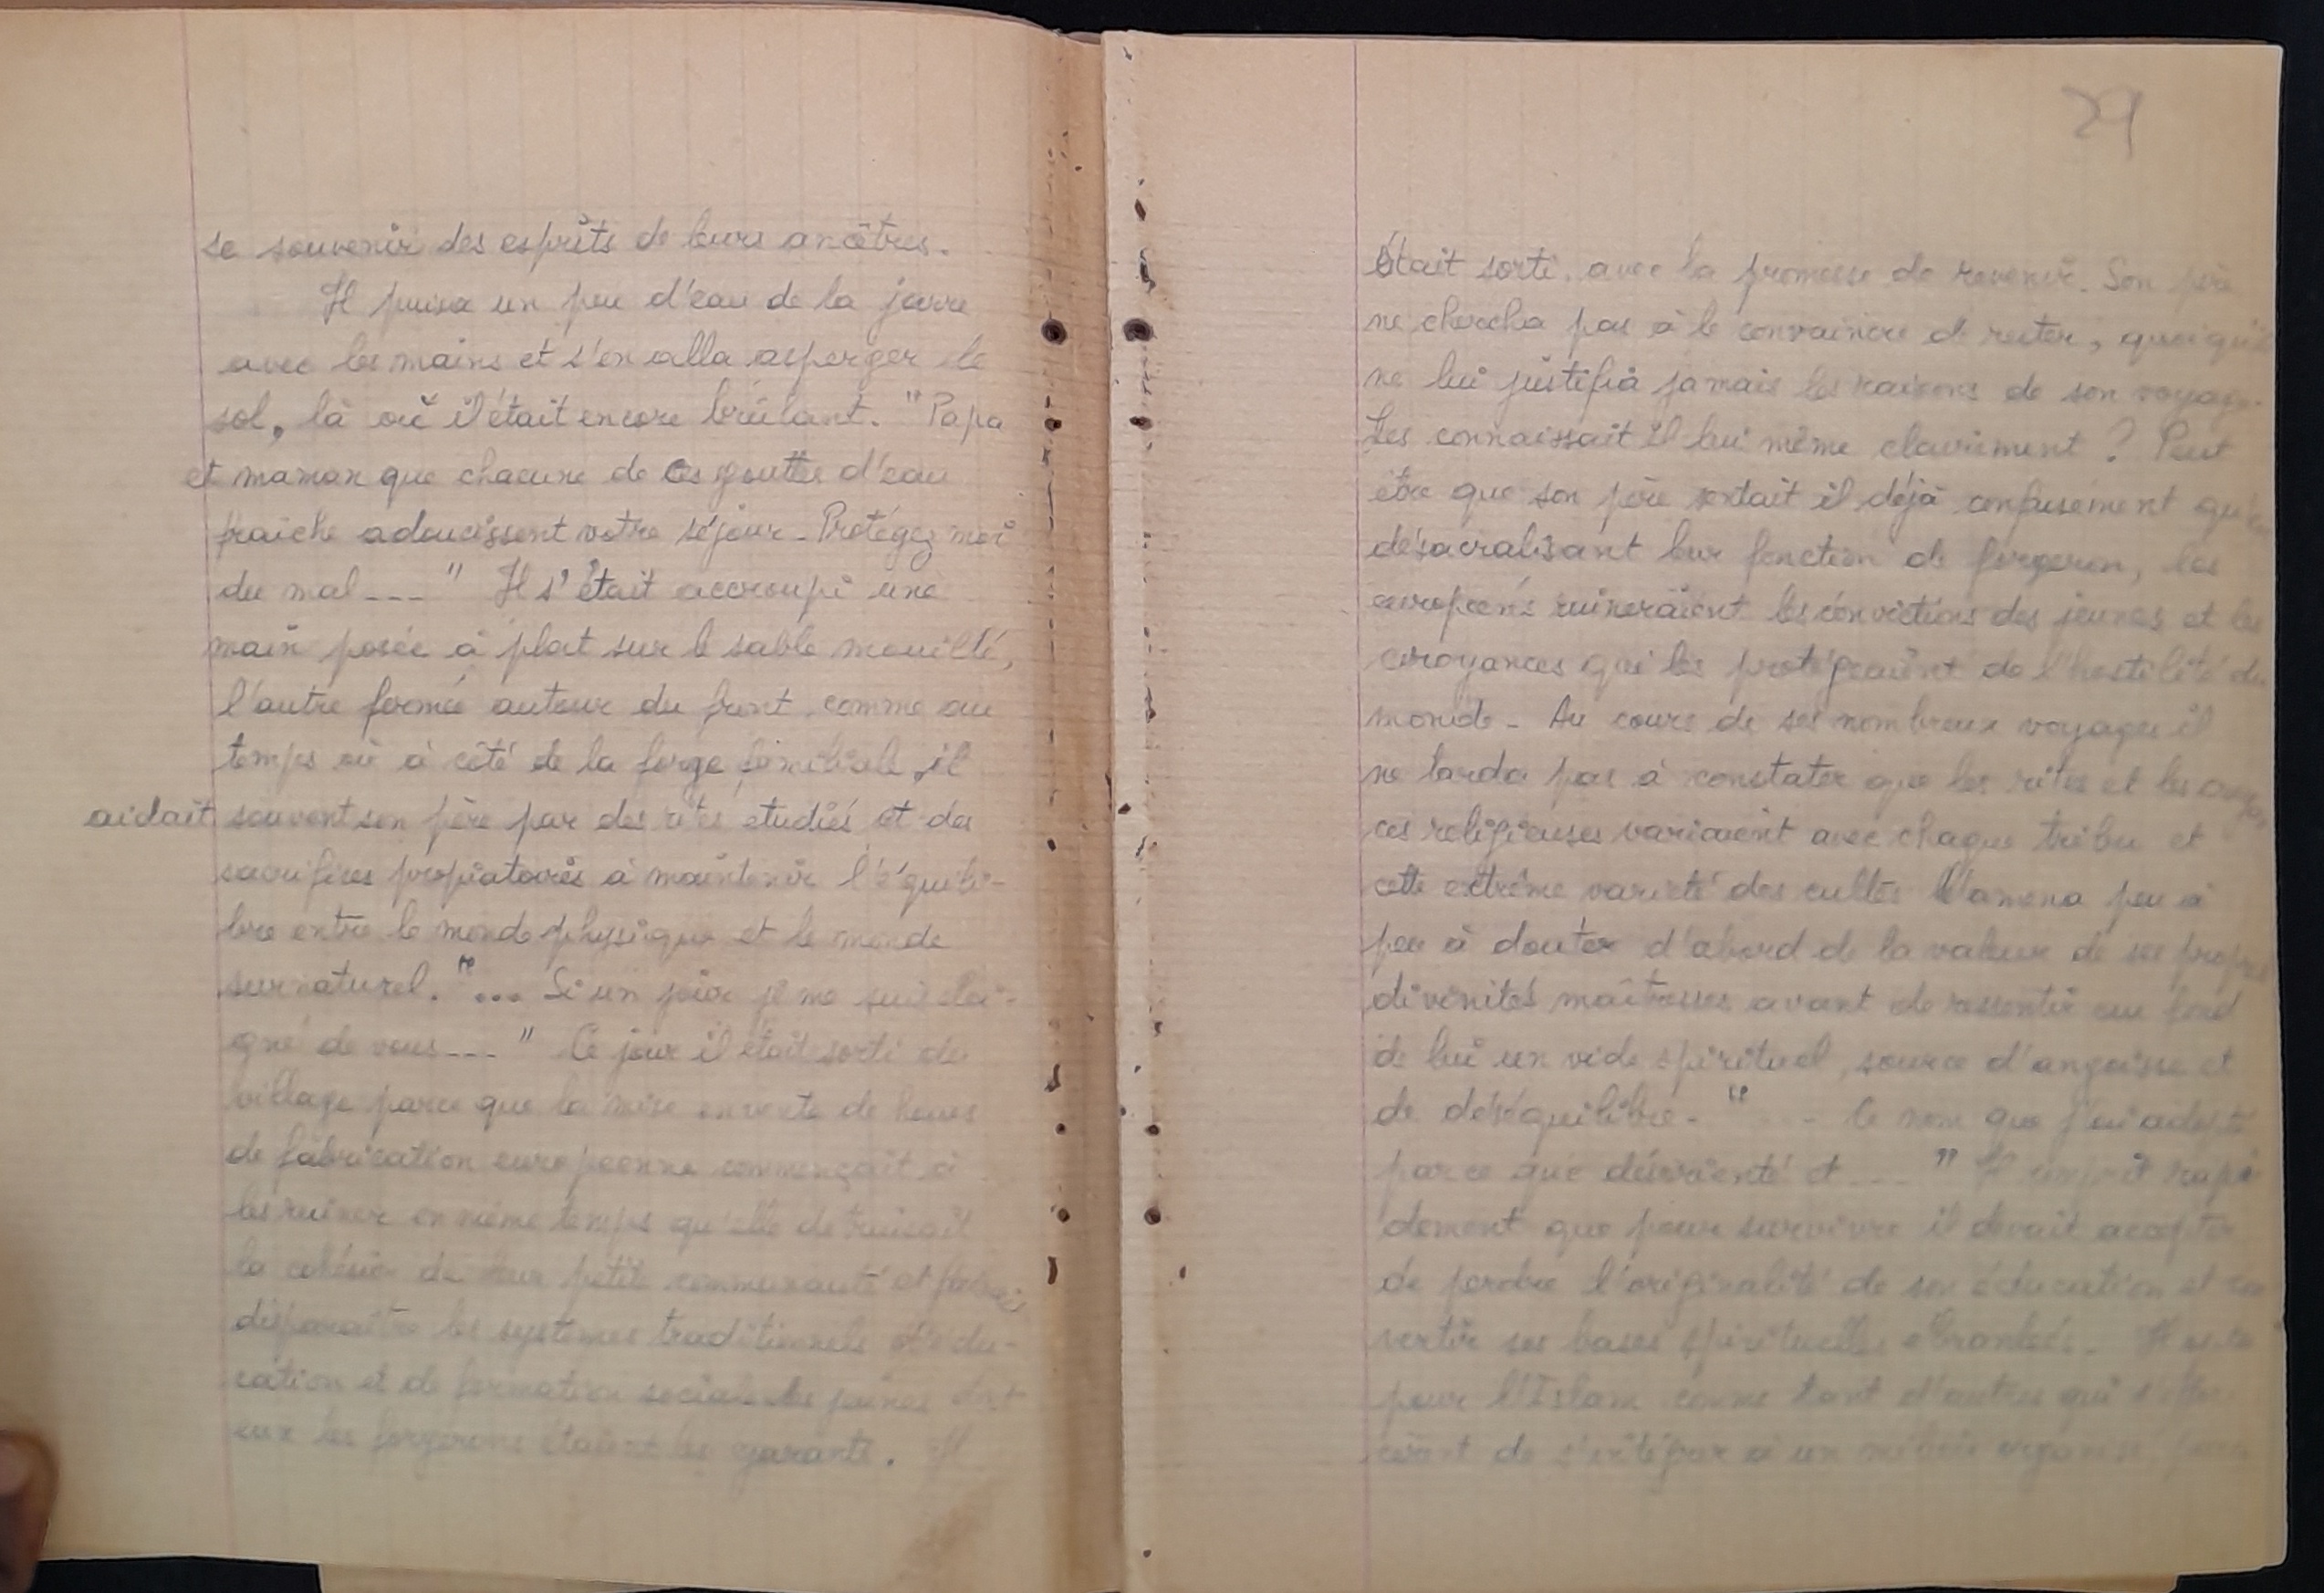 se souvenir des esprits de leurs ancêtres.
Il puisa un peu d'eau de la jarre
avec les mains et s'en alla asperger le
sol, là où il était encore brûlant. "Papa
et maman que chacune de ces gouttes d'eau
fraîche adoucissent votre séjour - Protégez moi
du mal --- " Il s'était accroupi une
main posée à plat sur le sable mouillé,
l'autre fermée autour du front comme au
temps où à côté de la forge familiale, il
aidait souvent son père par des rites étudiés et des
sacrifices propiatoires à maintenir l'équili-
bre entre le monde physique et le monde
surnaturel. "... Si un jour je me suis éloi-
gné de vous --- " Ce jour il était sorti du
village parce que la mise en vente de houes
de fabrication européenne commençait à
les ruiner en même temps qu'elle detruisait
la cohésion de leur petite communauté et
disparaître les systèmes traditionnels d'édu-
cation et de formation sociale des jeunes dont
eux les forgerons étaient les garants. Il
29
Était sorti avec la promesse de revenir. Son père
ne chercha pas à le convaincre de rester, quoiqu'il
ne lui justifia jamais les raisons de son voyage.
Les connaissait il lui même clairement ? Peut
être que son père sentait il déjà confusément qu'en
désacralisant leur fonction de forgeron, les
européens ruineraient les convictions des jeunes et les
croyances qui les protégeaient de l'hostilité du
monde - Au cours de ses nombreux voyages il
ne tarda pas à constater que les rites et les croyan
ces religieuses variaient avec chaque tribu et
cette extrême varieté des cultes l'amena peu à
peu à douter d'abord de la valeur de ses propres
divinités maîtresses avant de ressentir au fond
de lui un vide spirituel, source d'angoisse et
de déséquilibre - " - - le nom que j'ai adopté
parce que désorienté et --- " Il comprit rapi
dement que pour survivre il devait accepter
de perdre l'originalité de son éducation et con
vertir ses bases spirituelles ébranlées. Il
pour l'Islam comme tant d'autres qui
de à un milieu